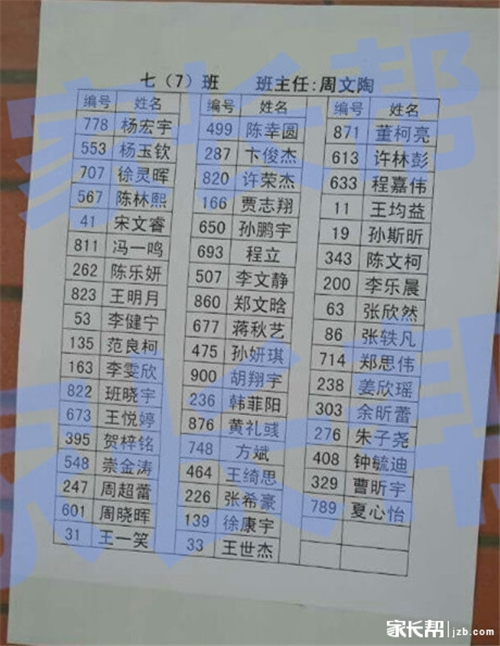 七（7）班 班主任:周文陶
编号 姓名 编号 姓名 编号 姓名
778 杨宏宇 499 陈幸圆 871 董柯亮
553 杨玉钦 287 卞俊杰 613 许林彭
707 徐灵晖 820 许荣杰 633 程嘉伟
567 陈林熙 166 贾志翔 11 王均益
41 宋文睿 650 孙鹏宇 19 孙斯昕
811 冯一鸣 693 程立 343 陈文柯
262 陈乐妍 507 李文静 200 李乐晨
823 王明月 860 郑文晗 63 张欣然
53 李健宁 677 蒋秋艺 86 张轶凡
135 范良柯 475 孙妍琪 714 郑思伟
163 李雯欣 900 胡翔宇 238 姜欣瑶
822 班晓宇 236 韩菲阳 303 余昕蕾
673 王悦婷 876 黄礼彧 276 朱子尧
395 贺梓铭 748 方斌 408 钟毓迪
548 崇金涛 464 王绮思 329 曹昕宇
247 周超蕾 226 张希豪 789 夏心怡
601 周晓晖 139 徐康宇
31 王一笑 33 王世杰
家长帮
家长帮 jzb.com